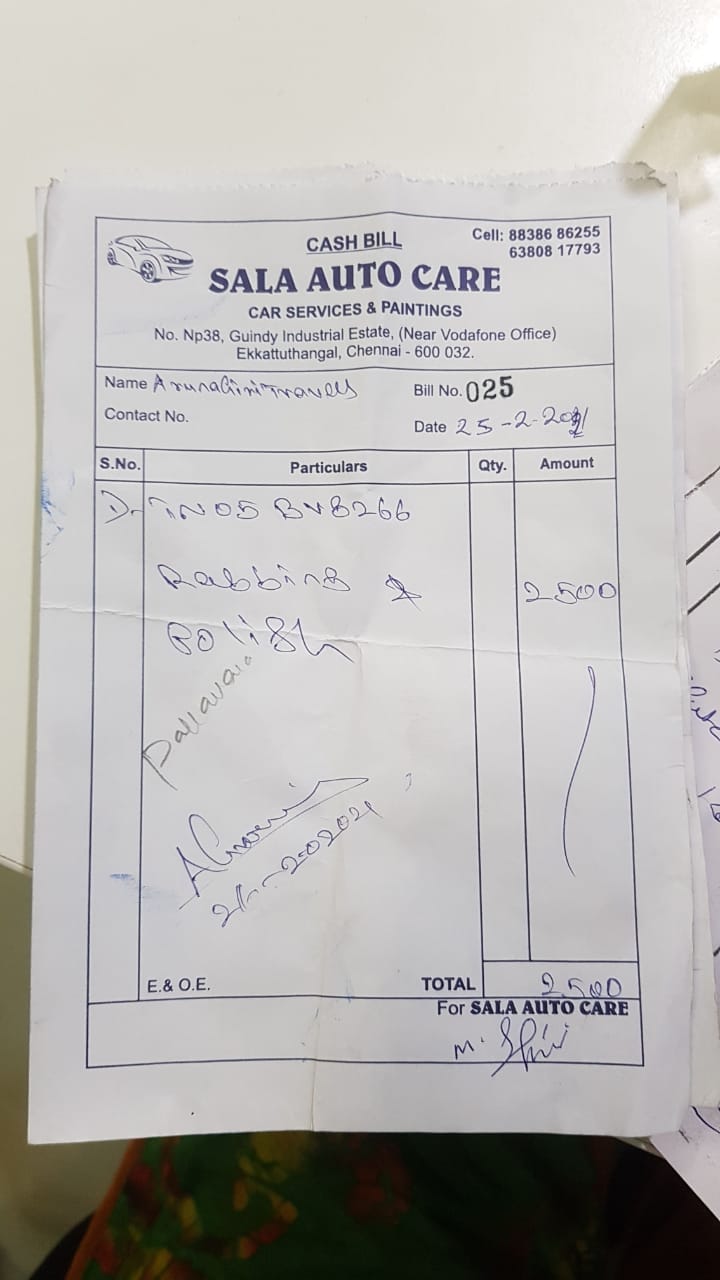 CASH BILL
Cell: 88386 86255
63808 17793
SALA AUTO CARE
CAR SERVICES & PAINTINGS
No. Np38, Guindy Industrial Estate, (Near Vodafone Office)
Ekkattuthangal, Chennai - 600 032.
Name Arunagiri Travels
Bill No. 025
Contact No.
Date 25-2-2021
S.No. Particulars Qty. Amount
TN05 BV8266
Rabbing & 2500
Polish
Pallavaia
E.& O.E. TOTAL 2500
For SALA AUTO CARE